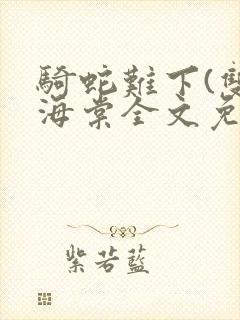 騎蛇難下(雙
海棠全文免
紫若藍